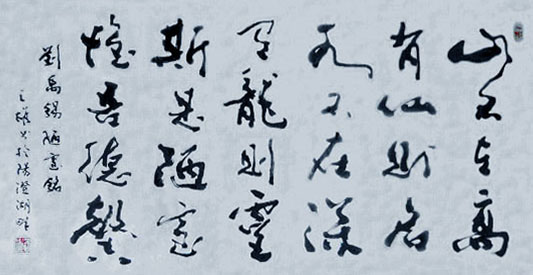 山不在高
有仙則名
水不在深
有龍則靈
斯是陋室
惟吾德馨
劉禹錫陋室銘
書於陽澄湖畔